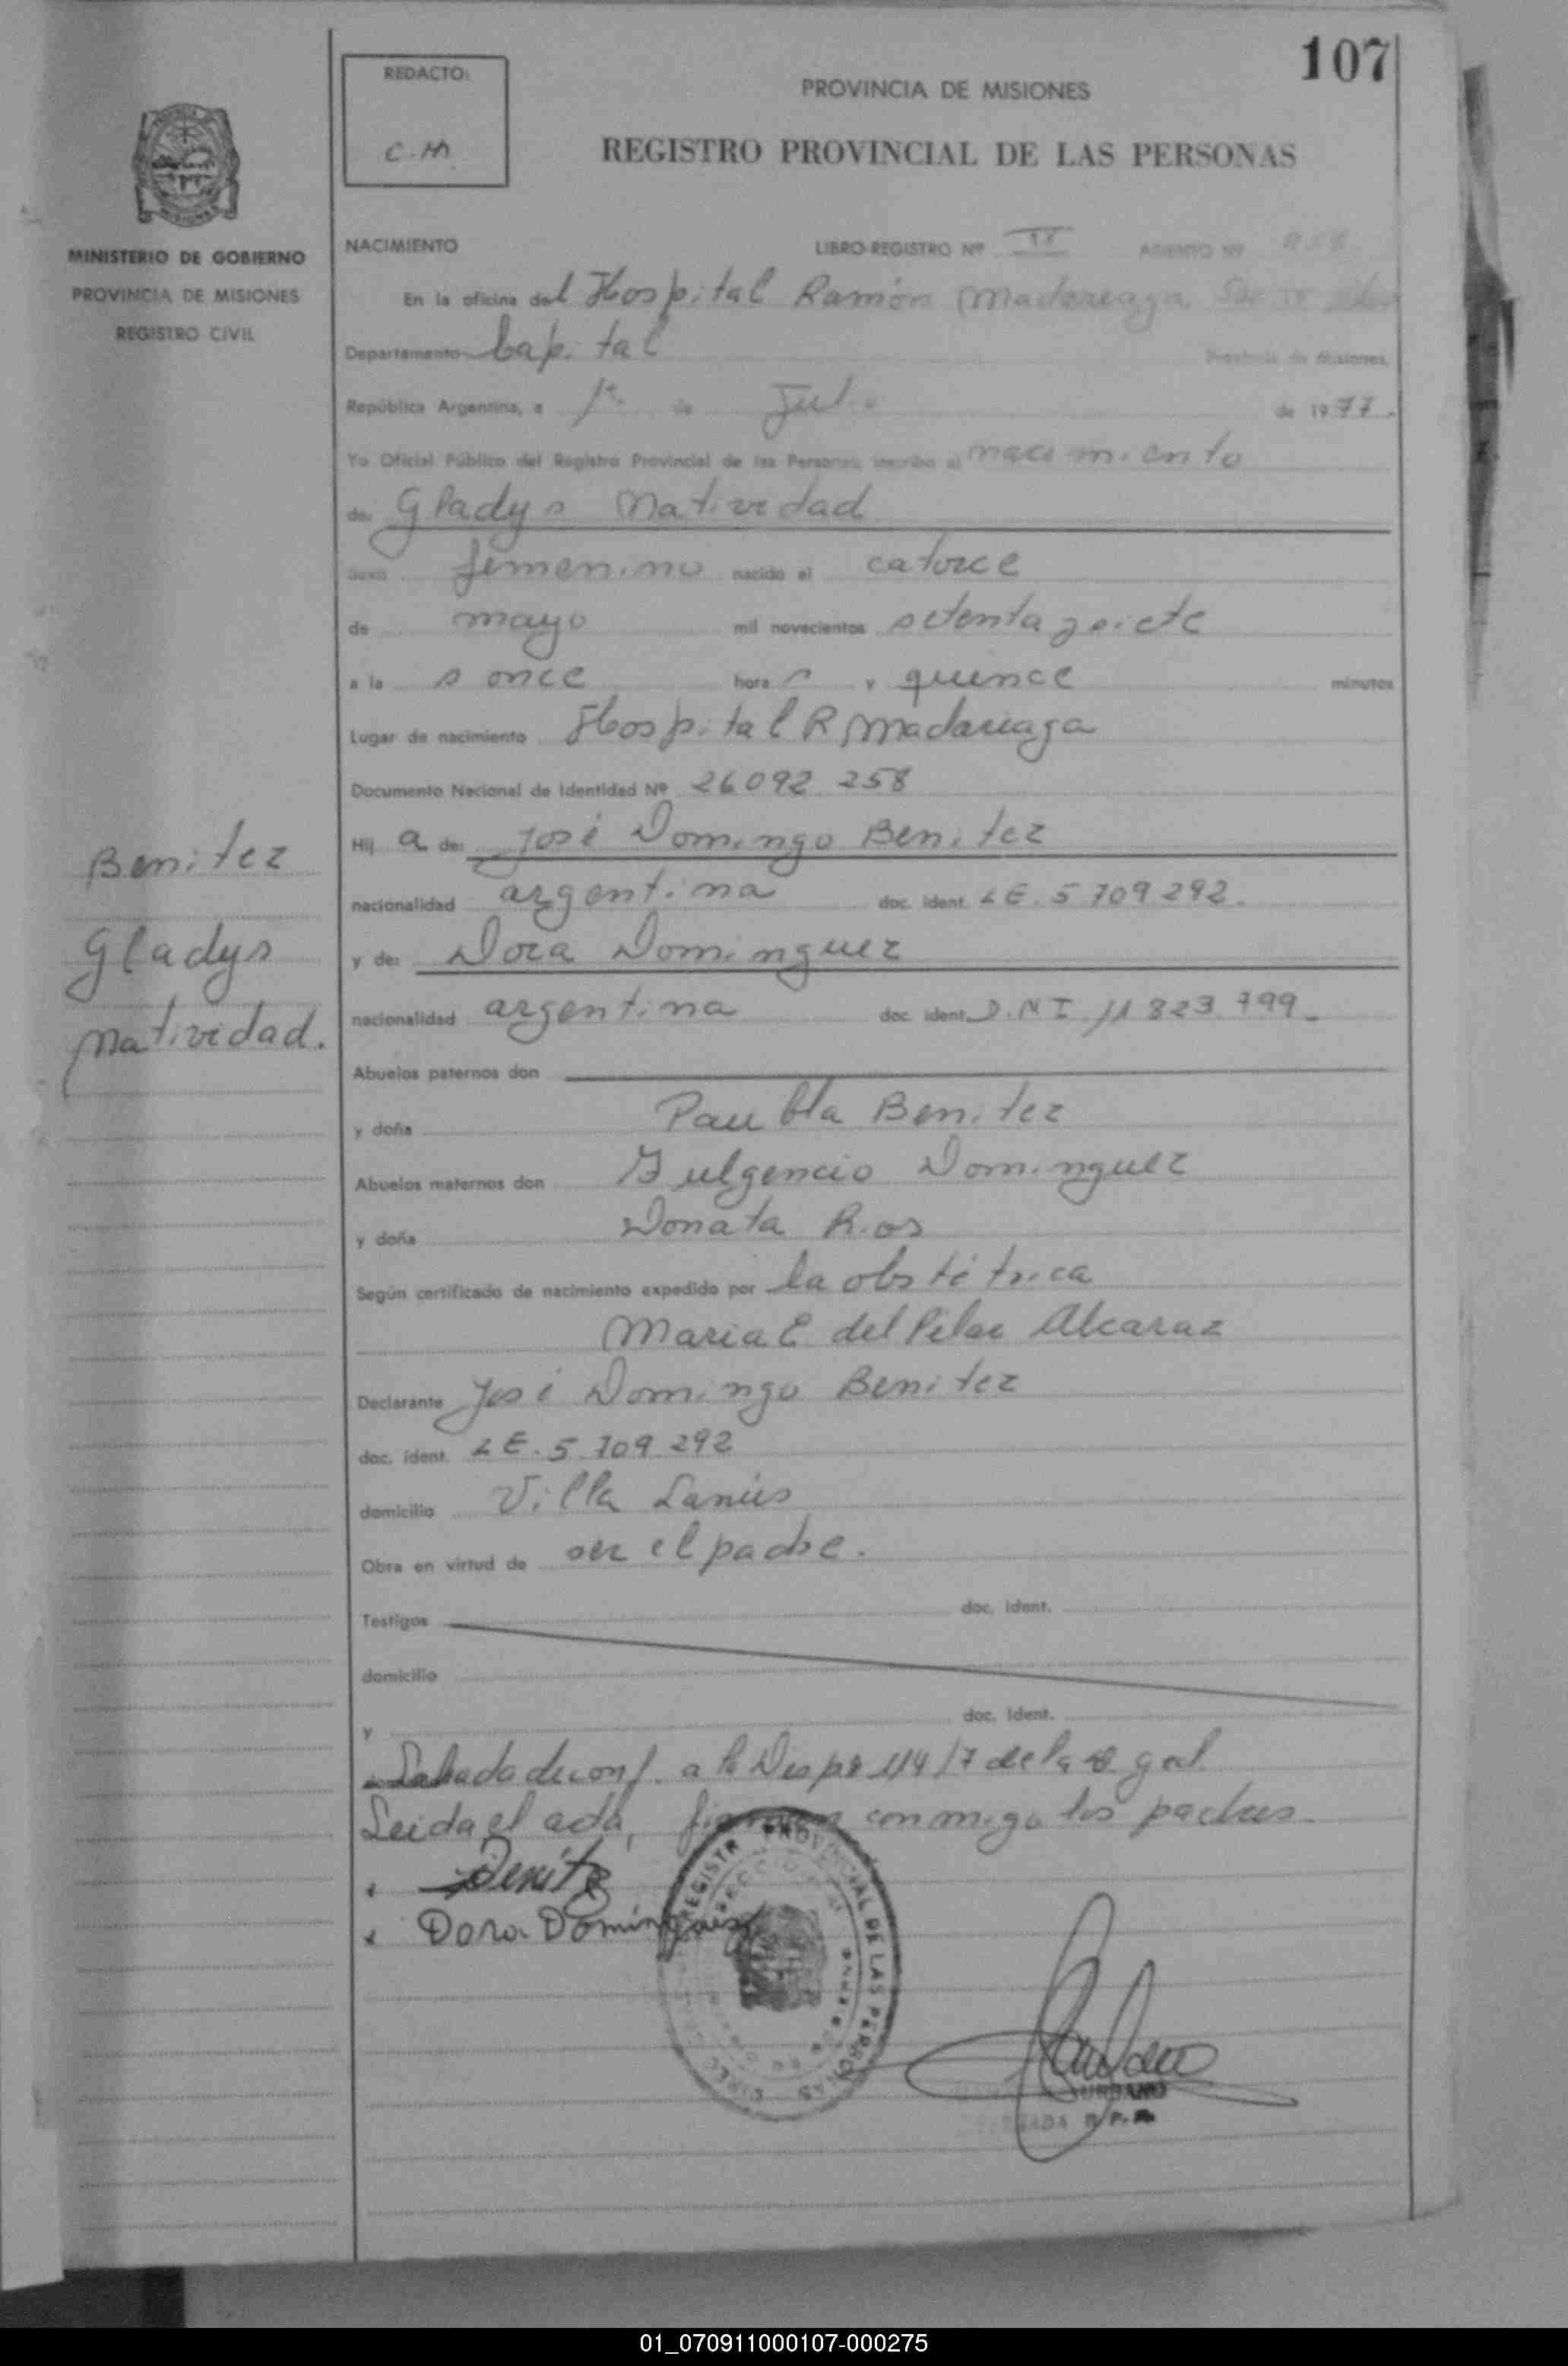 107
REDACTO:
C.M.
PROVINCIA DE MISIONES
REGISTRO PROVINCIAL DE LAS PERSONAS
MINISTERIO DE GOBIERNO
PROVINCIA DE MISIONES
REGISTRO CIVIL
NACIMIENTO LIBRO-REGISTRO Nº ASIENTO Nº
En la oficina del Hospital Ramón Madariaga
Departamento Capital Provincia de Misiones,
República Argentina, a 1º de Julio de 1977.
Yo Oficial Público del Registro Provincial de las Personas, inscribo el nacimiento
de: Gladys Natividad
Sexo femenino nacido el catorce
de mayo mil novecientos setenta y siete
a la s once hora s y quince minutos
Lugar de nacimiento Hospital R Madariaga
Documento Nacional de Identidad Nº 26 092 258
Hij a de: José Domingo Benitez
nacionalidad argentina doc. ident. LE. 5 709 292.
y de: Dora Dominguez
nacionalidad argentina doc. ident. D.N I 11 823 799.
Benitez
Gladys
Natividad.
Abuelos paternos don
y doña Paubla Benitez
Abuelos maternos don Fulgencio Dominguez
y doña Donata Rios
Según certificado de nacimiento expedido por la obstétrica
Maria E del Pilar Alcaraz
Declarante José Domingo Benitez
doc. ident. LE. 5 709 292
domicilio Villa Lanús
Obra en virtud de ser el padre.
Testigos doc. ident.
domicilio
y doc. ident.
de conf. a la de la gral.
Leida el acta, firman conmigo los padres.
x Benitez
x Dora Dominguez
REGISTRO PROVINCIAL DE LAS PERSONAS
URBANO
R.P.
01_070911000107-000275